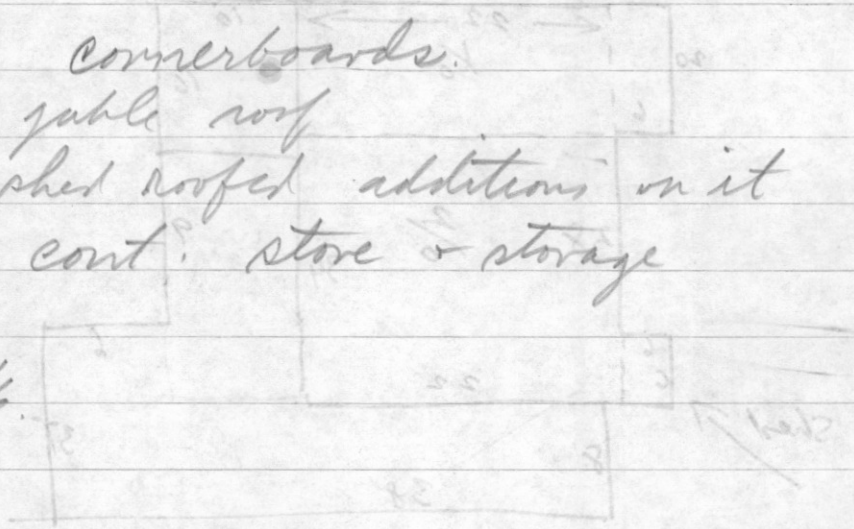 cornerboards.
gable roof
shed roofed additions on it
cont. store & storage